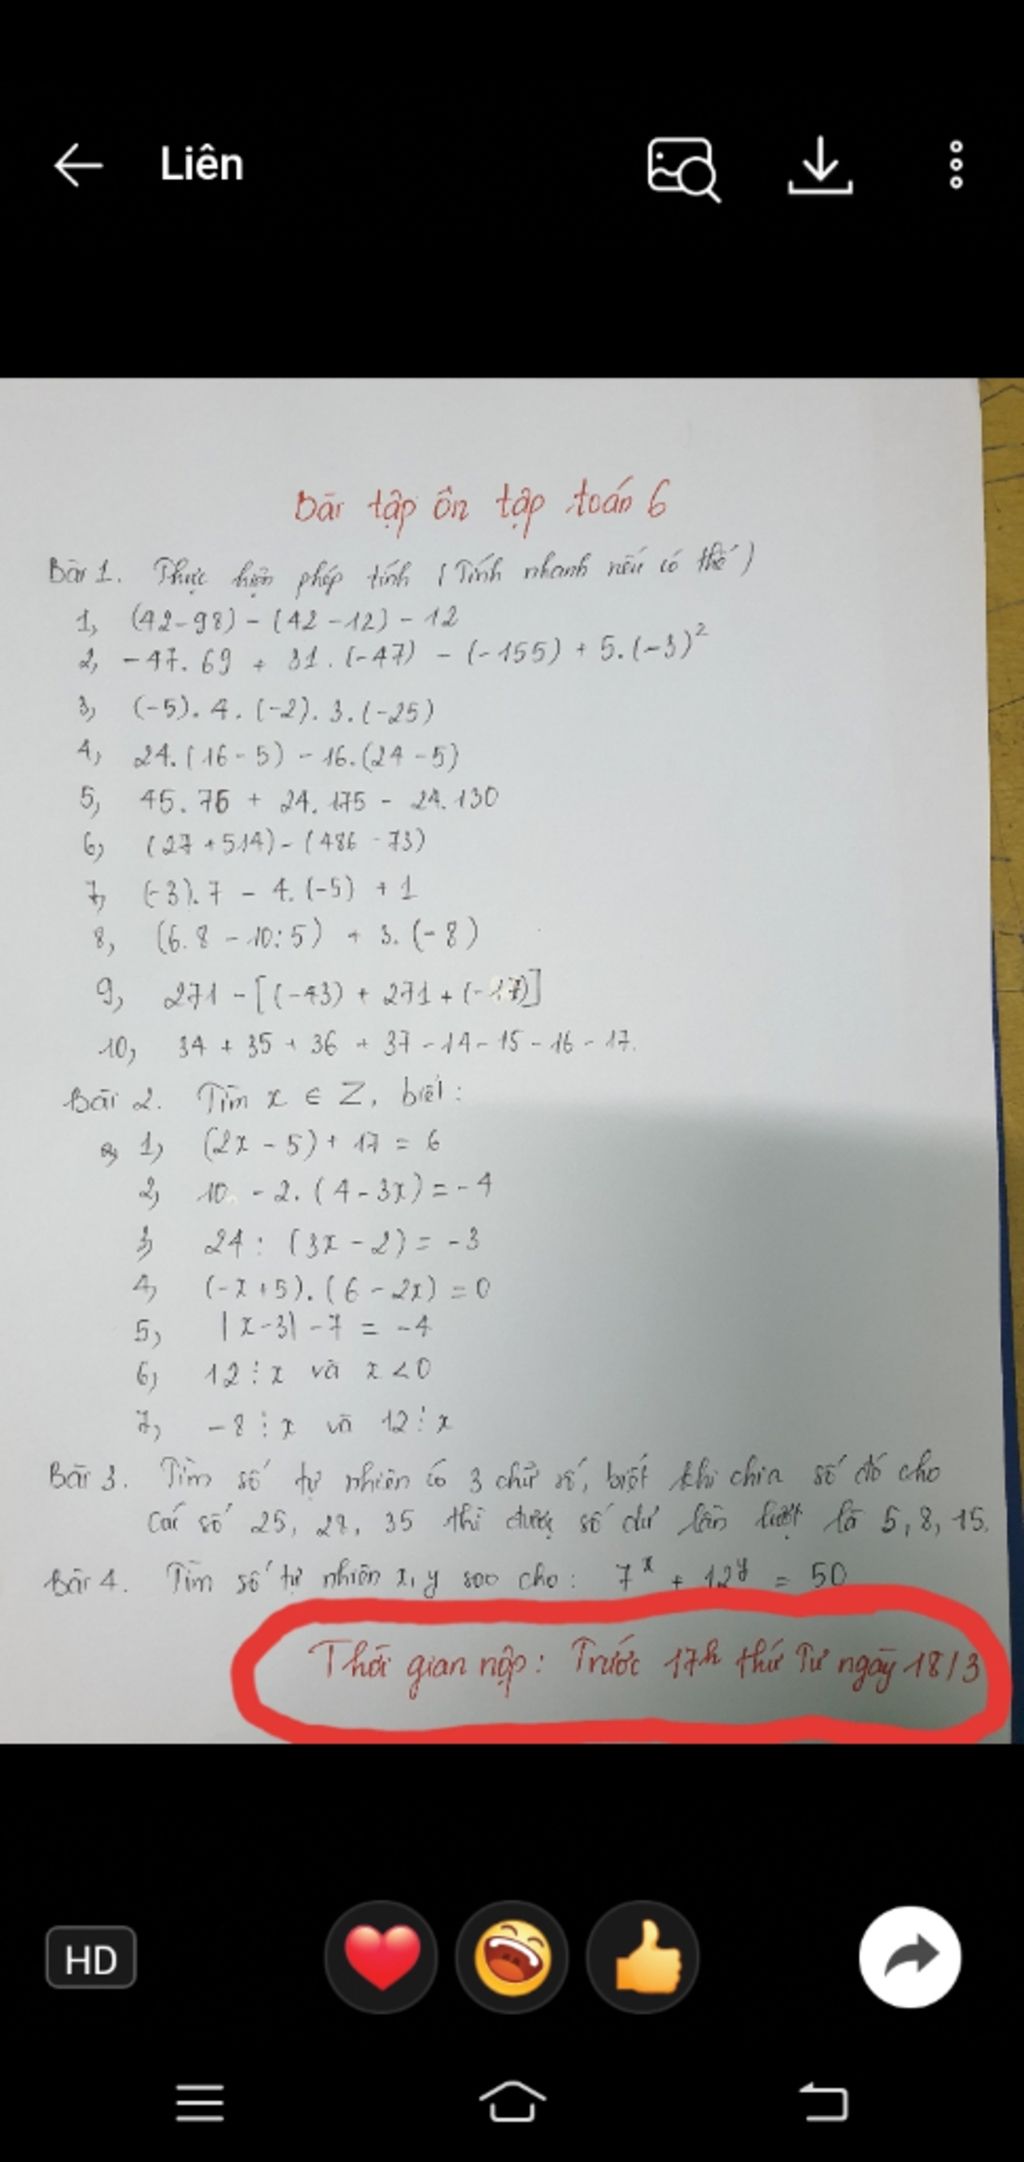 Liên
Bài tập ôn tập toán 6
Bài 1. Thực hiện phép tính (Tính nhanh nếu có thể)
1, (42-98) - (42-12) - 12
2, -47.69 + 31.(-47) - (-155) + 5.(-3)²
3, (-5).4.(-2).3.(-25)
4, 24.(16-5) - 16.(24-5)
5, 45.76 + 24.175 - 24.130
6, (27+514) - (486-73)
7, (-3).7 - 4.(-5) + 1
8, (6.8 - 10:5) + 3.(-8)
9, 271 - [(-43) + 271 + (-17)]
10, 34 + 35 + 36 + 37 - 14 - 15 - 16 - 17.
Bài 2. Tìm x ∈ Z, biết:
1, (2x - 5) + 17 = 6
2, 10 - 2.(4-3x) = -4
3, 24 : (3x - 2) = -3
4, (-x+5).(6-2x) = 0
5, |x-3| - 7 = -4
6, 12 ⋮ x và x < 0
7, -8 ⋮ x và 12 ⋮ x
Bài 3. Tìm số tự nhiên có 3 chữ số, biết khi chia số đó cho
các số 25, 28, 35 thì được số dư lần lượt là 5, 8, 15.
Bài 4. Tìm số tự nhiên x, y sao cho: 7^x + 12^y = 50
Thời gian nộp: Trước 17h thứ Tư ngày 18/3
HD